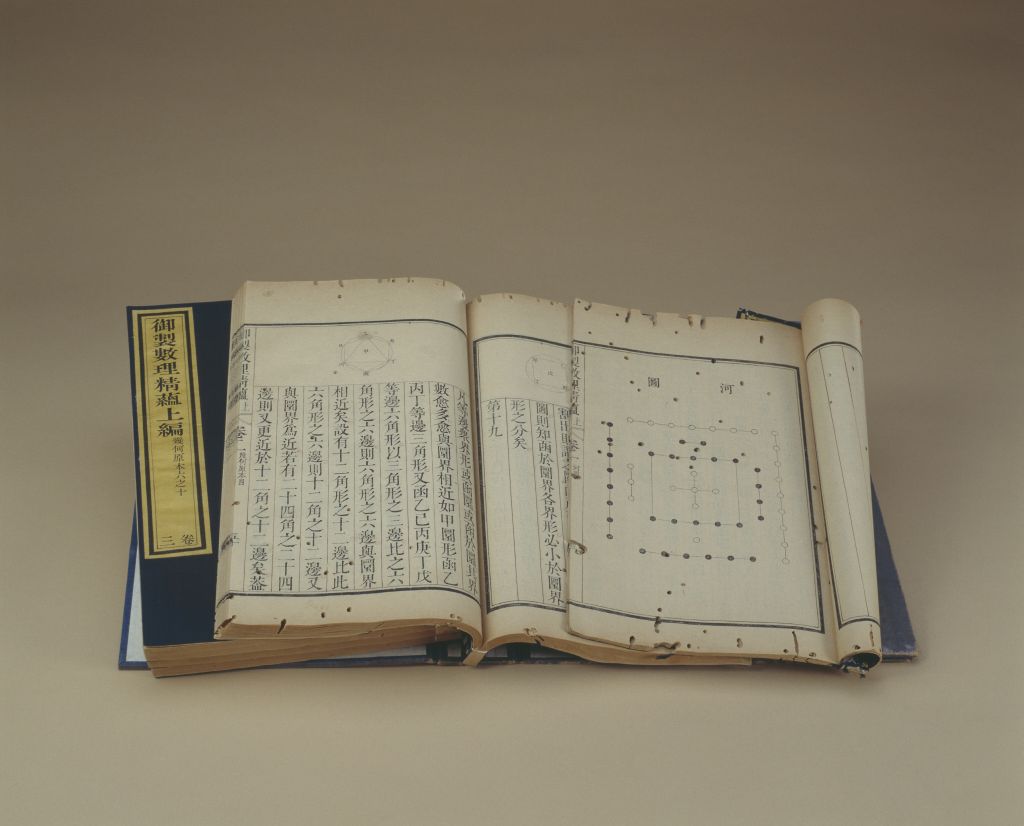 御製數理精蘊上編
幾何原本六之十
卷三
河圖
御製數理精蘊
卷一
形之分矣
圜則知函於圜界各界形必小於圜界
第十九
御製數理精蘊
卷三
數愈多愈與圜界相近如甲圜形函乙
丙丁等邊三角形又函乙己丙庚丁戊
等邊六角形以三角形之三邊比之六
角形之六邊則六角形之六邊與圜界
相近矣設有十二角形之十二邊比此
六角形之六邊則十二角之十二邊又
與圜界為近若有二十四角之二十四
邊則又更近於十二角之十二邊矣蓋